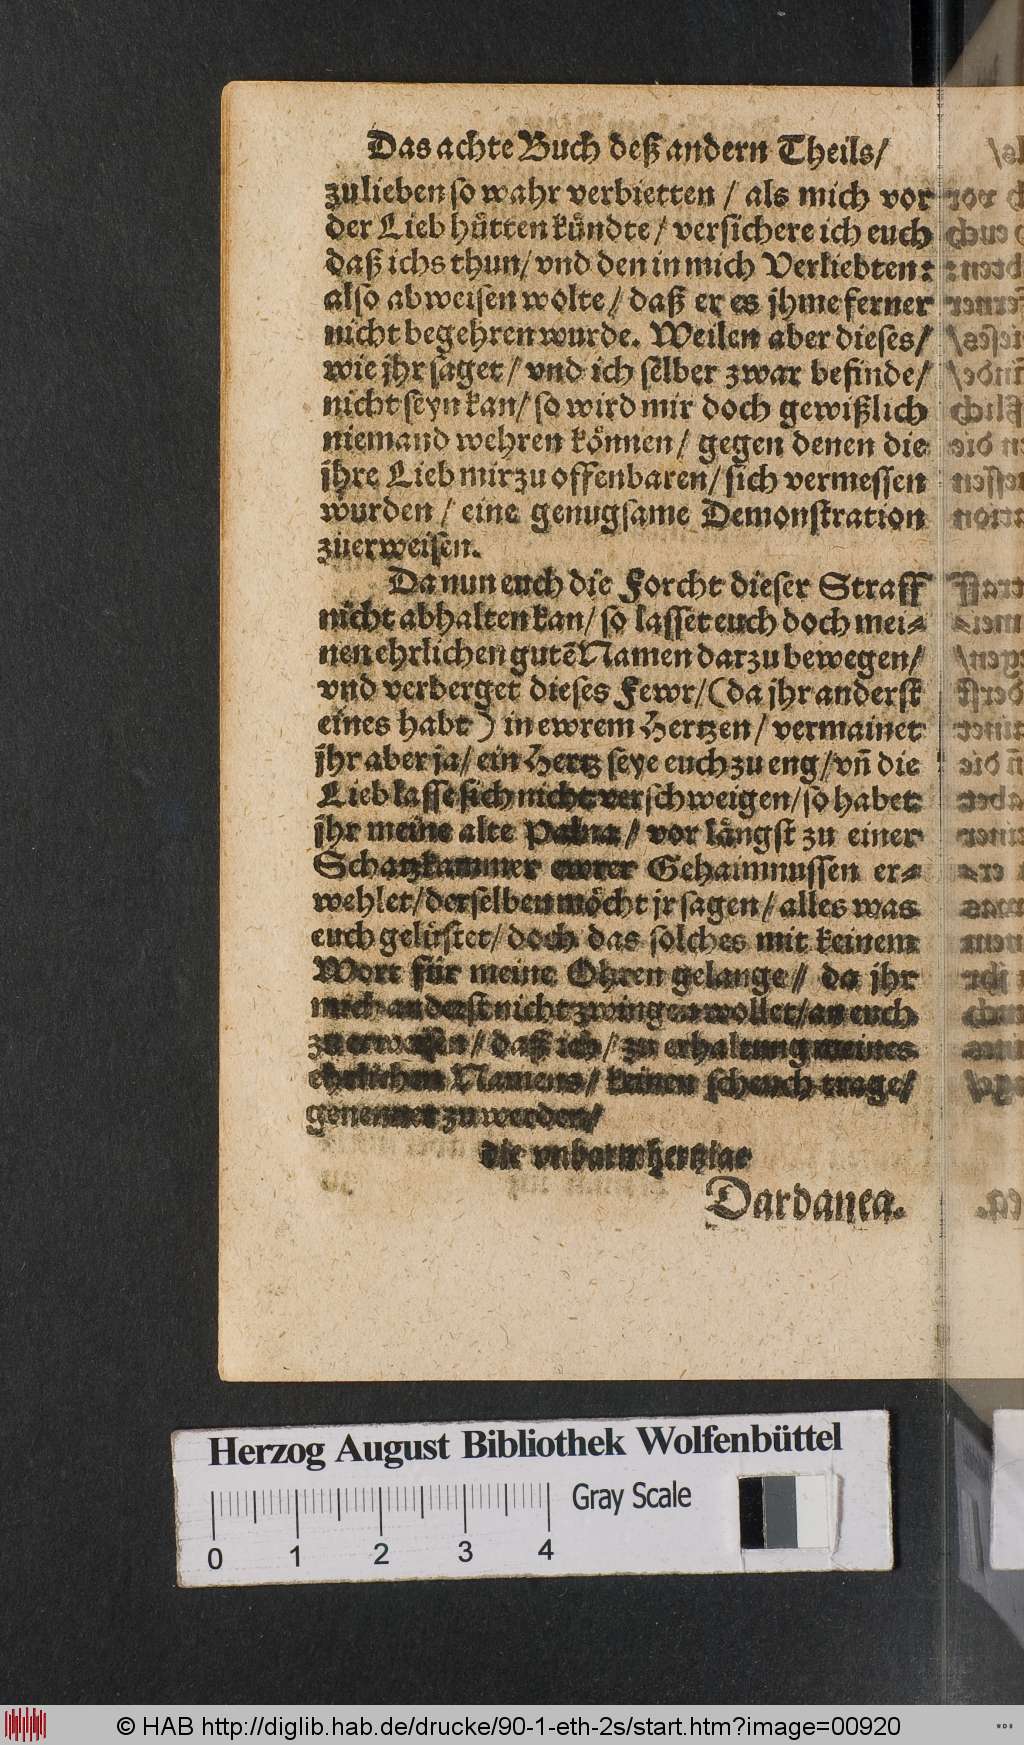 Das achte Buch deß andern Theils/
zulieben so wahr verbietten / als mich vor
der Lieb hůtten kůndte / versichere ich euch
daß ichs thun/ vnd den in mich Verliebten:
also abweisen wolte / daß er es jhme ferner
nicht begehren wurde. Weilen aber dieses/
wie jhr saget / vnd ich selber zwar befinde/
nicht seyn kan/ so wird mir doch gewißlich
niemand wehren kőnnen / gegen denen die
jhre Lieb mir zu offenbaren/ sich vermessen
wurden / eine genugsame Demonstration
zuerweisen.
Da nun euch die Forcht dieser Straff
nicht abhalten kan/ so lasset euch doch mei-
nen ehrlichen gutẽ Namen darzu bewegen/
vnd verberget dieses Fewr/ (da jhr anderst
eines habt) in ewrem Hertzen / vermainet
jhr aber ja/ ein Hertz seye euch zu eng/ vñ die
Lieb lasse sich nicht verschweigen/ so habet
jhr meine alte Palna / vor långst zu einer
Schatzkammer ewrer Gehaimnussen er-
wehlet/ derselben mőcht jr sagen / alles was
euch gelůstet/ doch das solches mit keinem
Wort für meine Ohren gelange / da jhr
mich anderst nicht zwingen wollet/ an euch
zu erweisen / daß ich / zu erhaltung meines
ehrlichen Namens/ keinen scheuch trage/
genennet zu werden/
die vnbarmhertzige
Dardanea.
Herzog August Bibliothek Wolfenbüttel
Gray Scale
0 1 2 3 4
© HAB http://diglib.hab.de/drucke/90-1-eth-2s/start.htm?image=00920